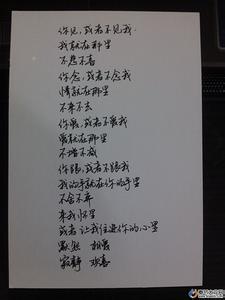 你见,或者不见我
我就在那里
不悲不喜
你念,或者不念我
情就在那里
不来不去
你爱,或者不爱我
爱就在那里
不增不减
你跟,或者不跟我
我的手就在你的手里
不舍不弃
来我怀里
或者 让我住进你的心里
默然 相爱
寂静 欢喜